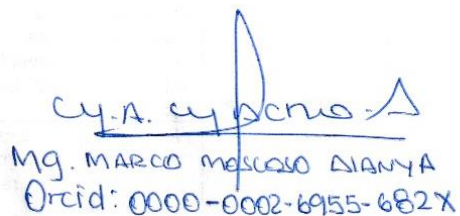 Mg. MARCO MOSCOSO ALANYA
Orcid: 0000-0002-6955-682X